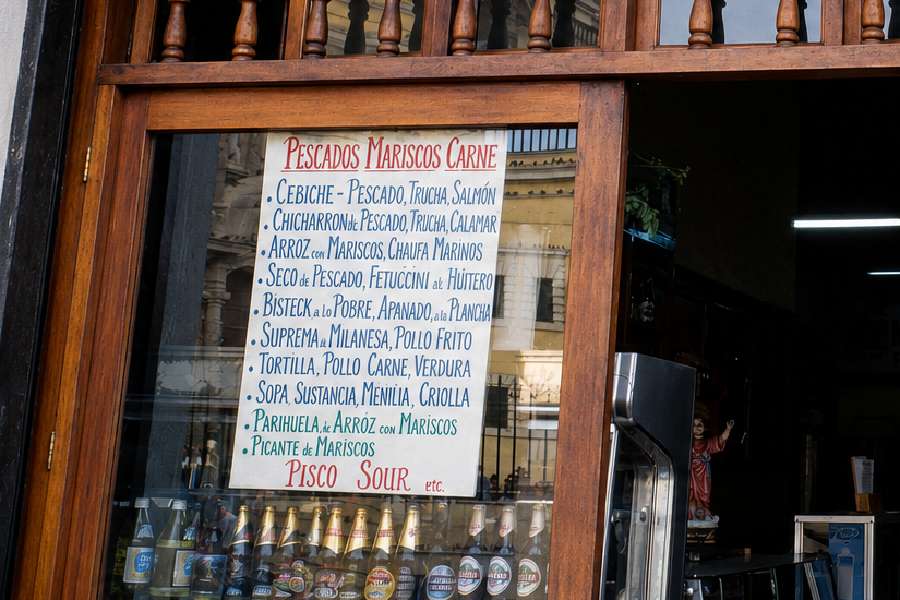 PESCADOS MARISCOS CARNE
• CEBICHE - PESCADO, TRUCHA, SALMÓN
• CHICHARRON de PESCADO, TRUCHA, CALAMAR
• ARROZ con MARISCOS, CHAUFA MARINOS
• SECO de PESCADO, FETUCCINI al HUITERO
• BISTECK a lo POBRE, APANADO, a la PLANCHA
• SUPREMA de MILANESA, POLLO FRITO
• TORTILLA, POLLO CARNE, VERDURA
• SOPA, SUSTANCIA, MENILIA, CRIOLLA
• PARIHUELA, de ARRÓZ con MARISCOS
• PICANTE de MARISCOS
PISCO SOUR etc.